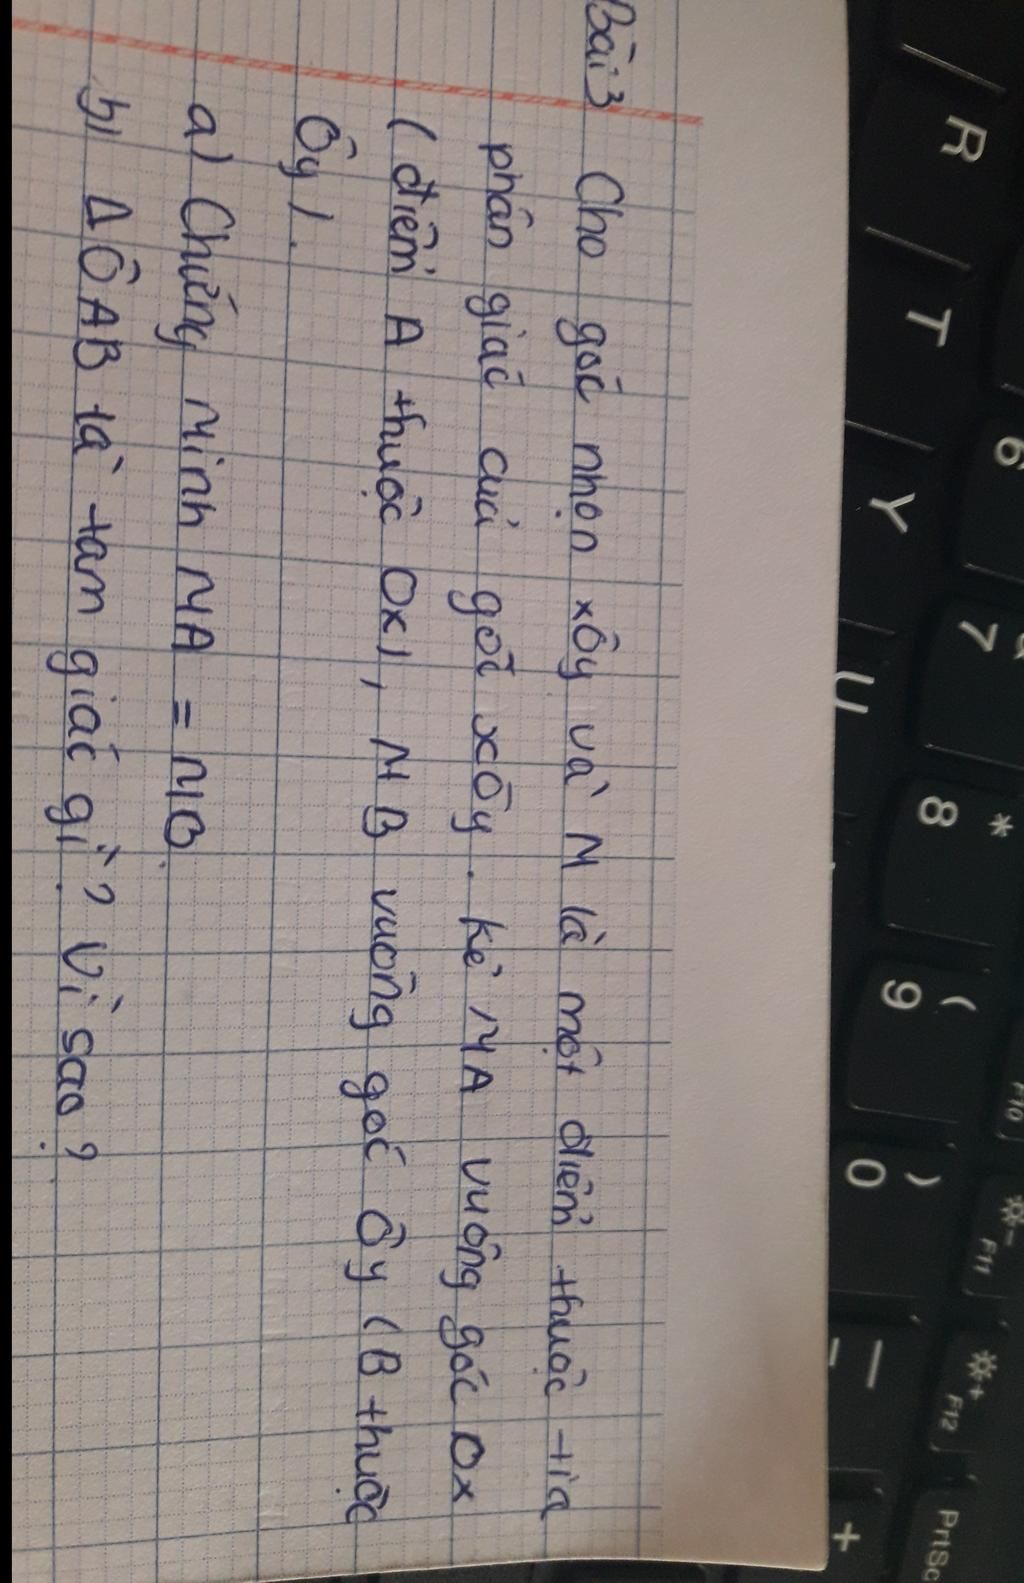 Bài 3 Cho góc nhọn xÔy và M là một điểm thuộc tia
phân giác của góc xÔy. kẻ MA vuông góc Ox
(điểm A thuộc Ox), MB vuông góc Ôy (B thuộc
Ôy).
a) Chứng minh MA = MB.
b) ΔÔAB là tam giác gì? Vì sao?
R
T
Y
U
6
& 7
* 8
( 9
) 0
— =
+
F10
F11
F12
PrtSc